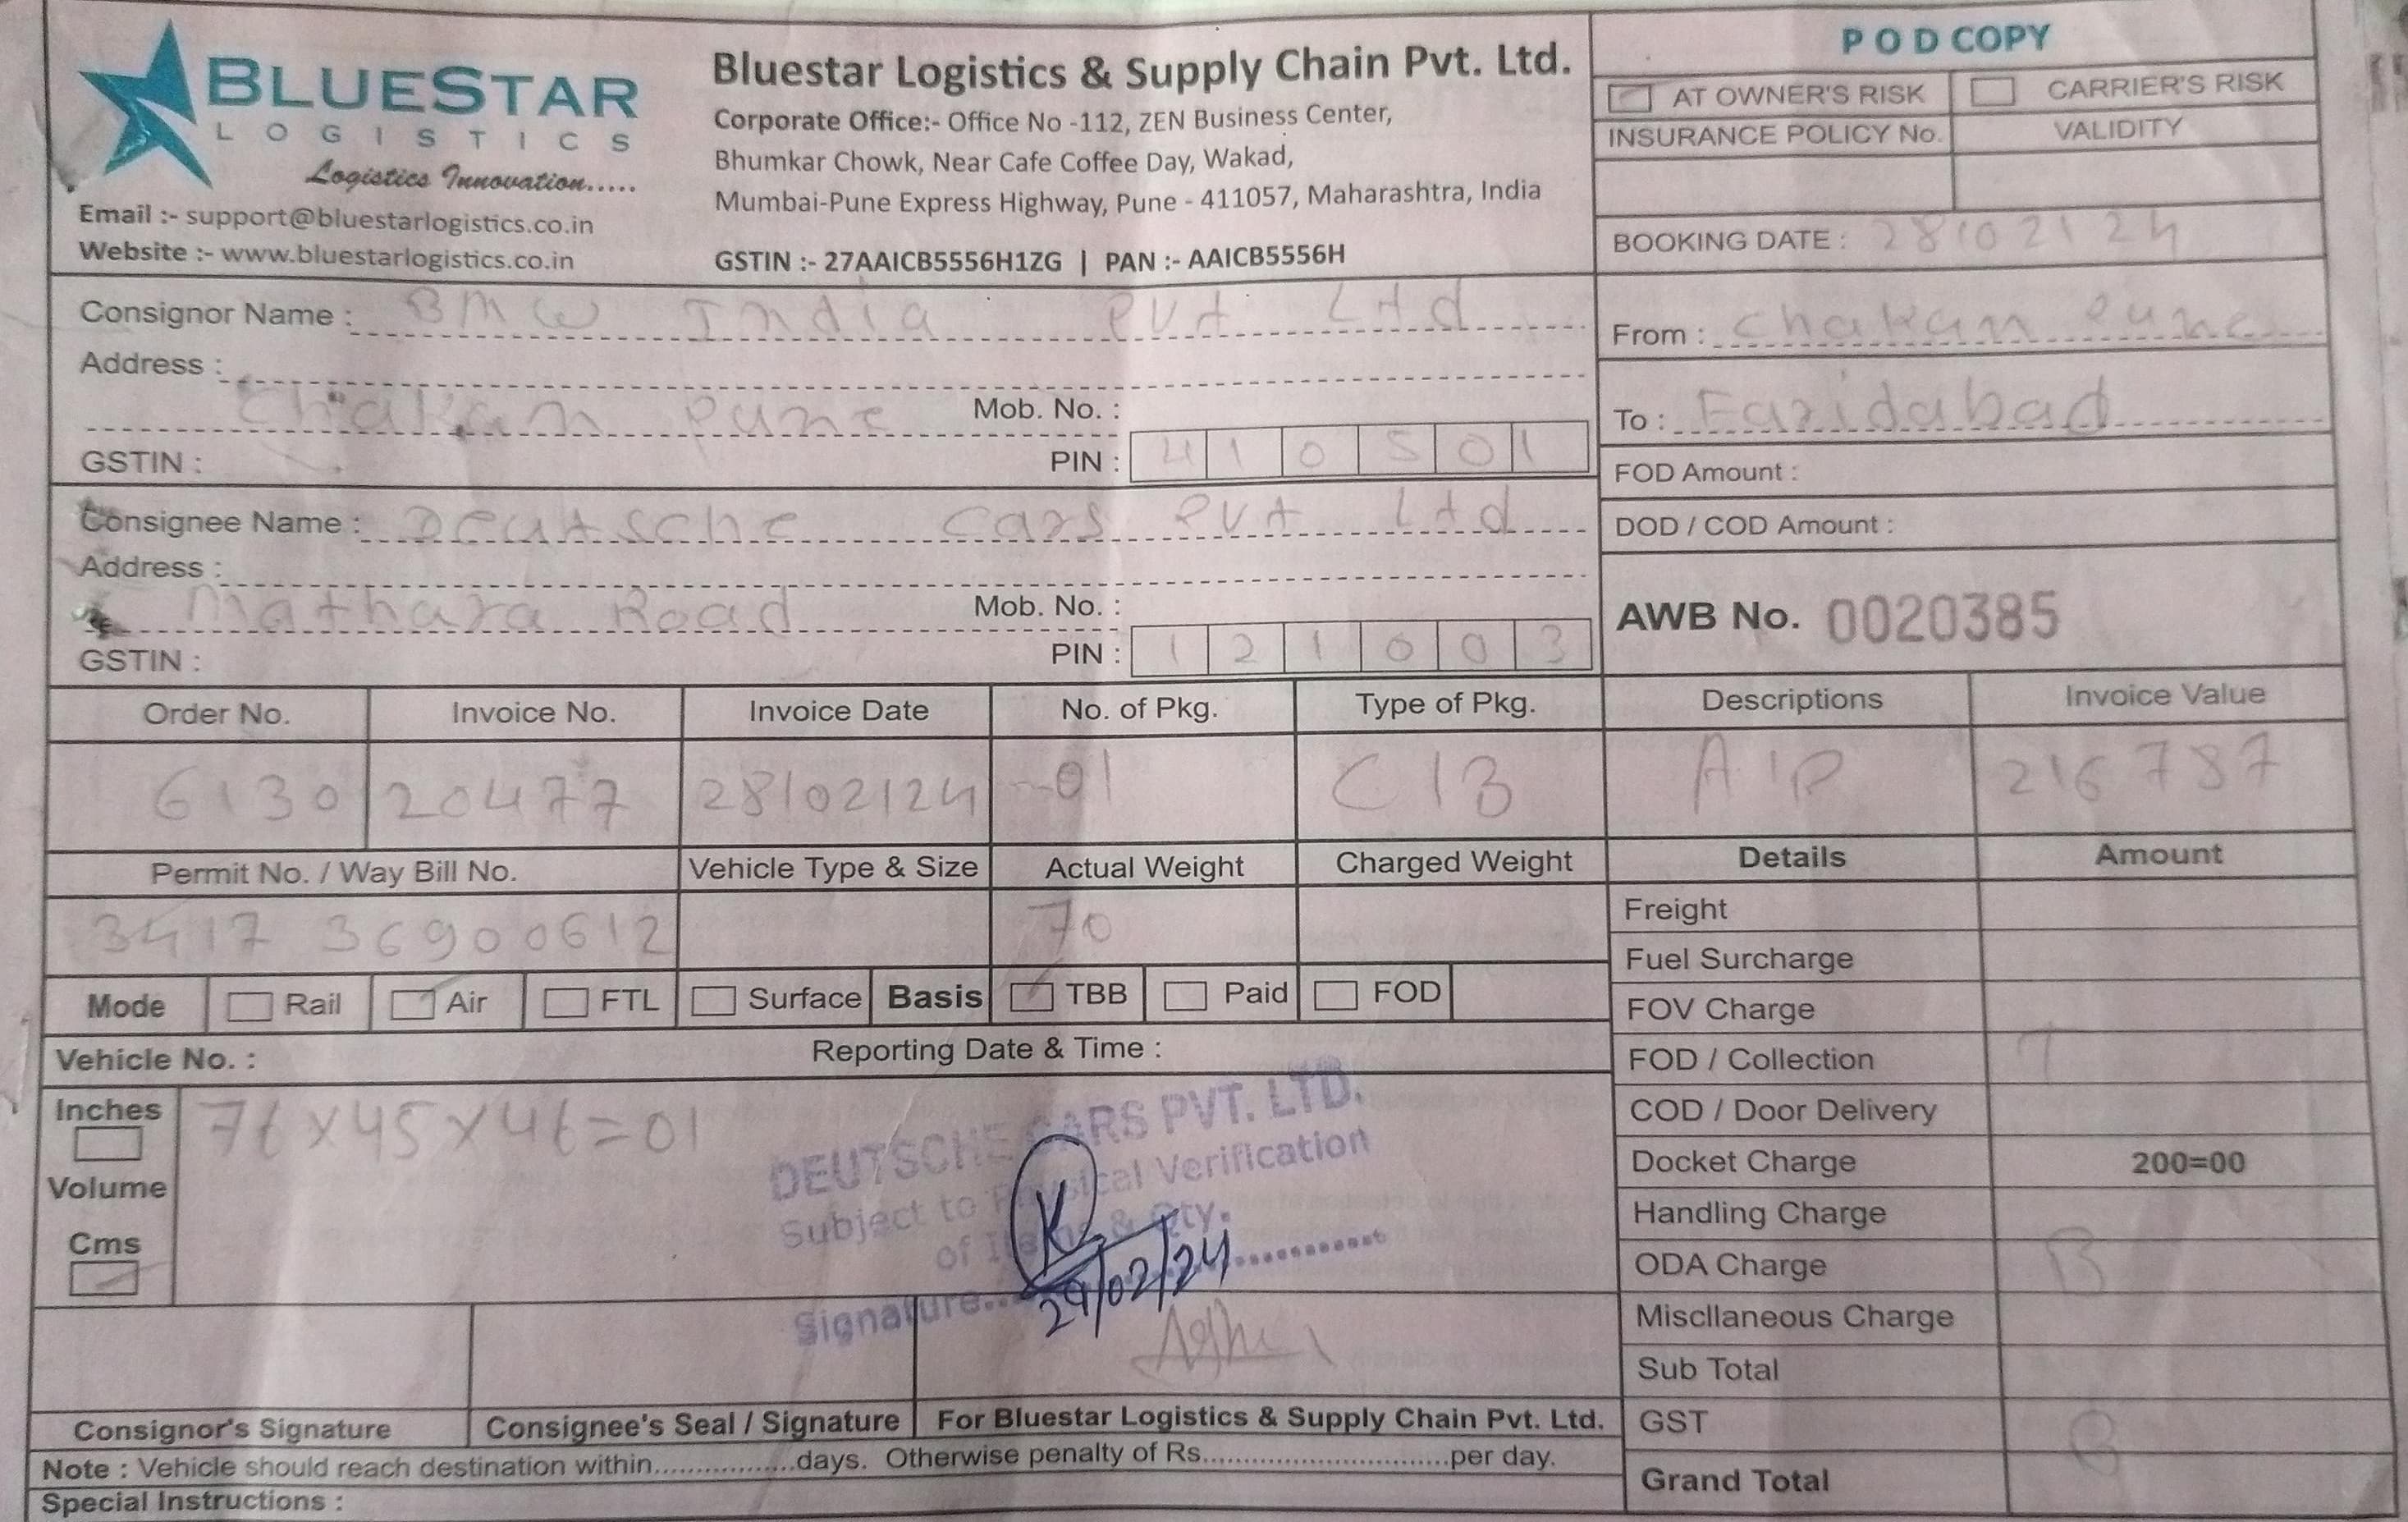 BLUESTAR
LOGISTICS
Logistics Innovation.....
Email :- support@bluestarlogistics.co.in
Website :- www.bluestarlogistics.co.in
Bluestar Logistics & Supply Chain Pvt. Ltd.
Corporate Office:- Office No -112, ZEN Business Center,
Bhumkar Chowk, Near Cafe Coffee Day, Wakad,
Mumbai-Pune Express Highway, Pune - 411057, Maharashtra, India
GSTIN :- 27AAICB5556H1ZG | PAN :- AAICB5556H
POD COPY
AT OWNER'S RISK CARRIER'S RISK
INSURANCE POLICY No. VALIDITY
BOOKING DATE : 28/02/24
Consignor Name : BMW India Pvt Ltd
Address :
Chakan Pune Mob. No. :
GSTIN : PIN : 410501
From : Chakan Pune
To : Faridabad
FOD Amount :
Consignee Name : Deutsche Cars Pvt Ltd
Address :
Mathura Road Mob. No. :
GSTIN : PIN : 121003
DOD / COD Amount :
AWB No. 0020385
Order No. Invoice No. Invoice Date No. of Pkg. Type of Pkg. Descriptions Invoice Value
6130 20477 28/02/24 01 C/B A/P 216787
Permit No. / Way Bill No. Vehicle Type & Size Actual Weight Charged Weight Details Amount
3417 36900612 70
Freight
Fuel Surcharge
Mode Rail Air FTL Surface Basis TBB Paid FOD
FOV Charge
Vehicle No. : Reporting Date & Time :
FOD / Collection T
Inches
Volume
Cms
76x45x46=01
DEUTSCHE CARS PVT. LTD.
Subject to Physical Verification
of Items & Qty.
Signature..
K
29/02/24
COD / Door Delivery
Docket Charge 200=00
Handling Charge
ODA Charge B
Miscllaneous Charge
Sub Total
GST B
Grand Total
Consignor's Signature Consignee's Seal / Signature For Bluestar Logistics & Supply Chain Pvt. Ltd.
Note : Vehicle should reach destination within................days. Otherwise penalty of Rs.............................per day.
Special Instructions :